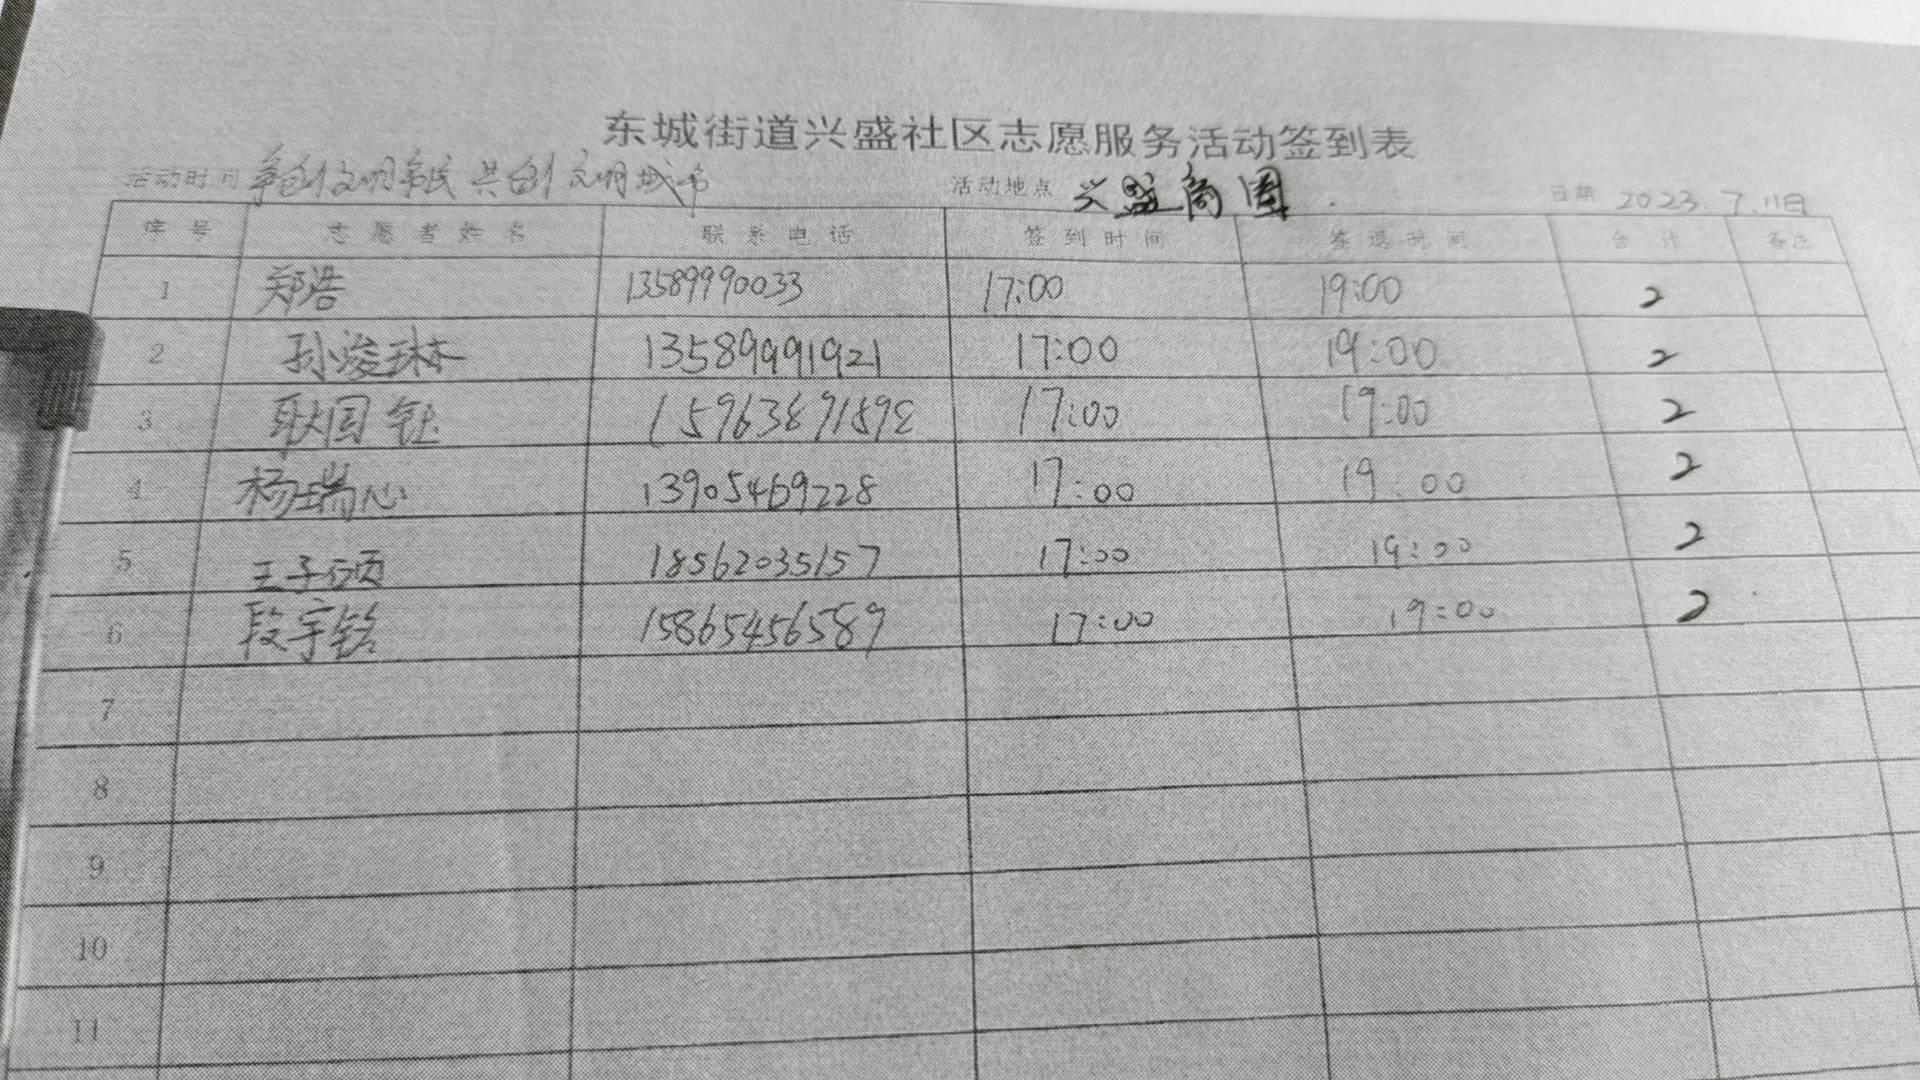 东城街道兴盛社区志愿服务活动签到表
活动时间 争创文明市民 共创文明城市 活动地点 兴盛商圈 日期 2023.7.11日
序号 志愿者姓名 联系电话 签到时间 签退时间 合计 备注
1 郑浩 13589990033 17:00 19:00 2
2 孙浚琳 13589991921 17:00 19:00 2
3 耿国钰 15963891598 17:00 19:00 2
4 杨瑞心 13905469228 17:00 19:00 2
5 王子硕 18562035157 17:00 19:00 2
6 段宇铭 15865456589 17:00 19:00 2
7
8
9
10
11